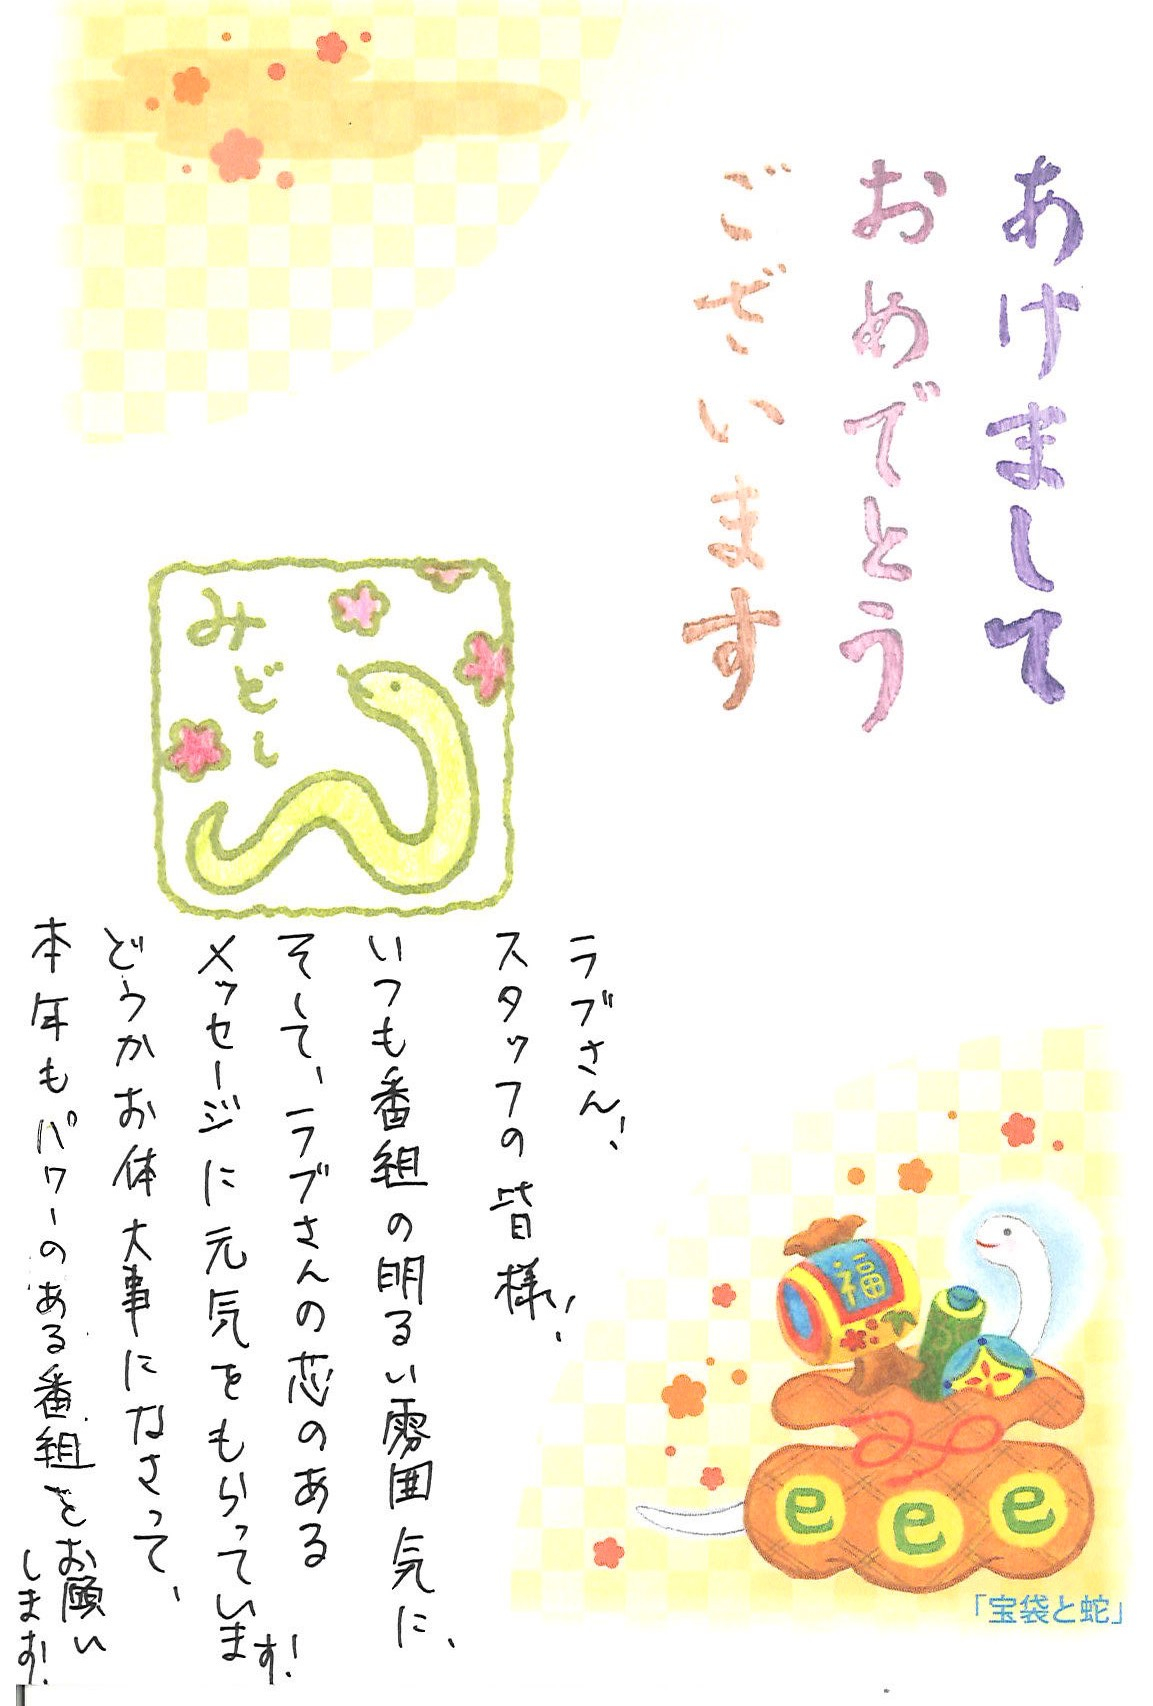 あけまして
おめでとう
ございます
みどし
ラブさん!
スタッフの皆様!
いつも番組の明るい雰囲気に、
そして、ラブさんの恋のある
メッセージに元気をもらっています!
どうかお体大事になさって、
本年もパワーのある番組をお願い
します!
福
巳
巳
巳
「宝袋と蛇」